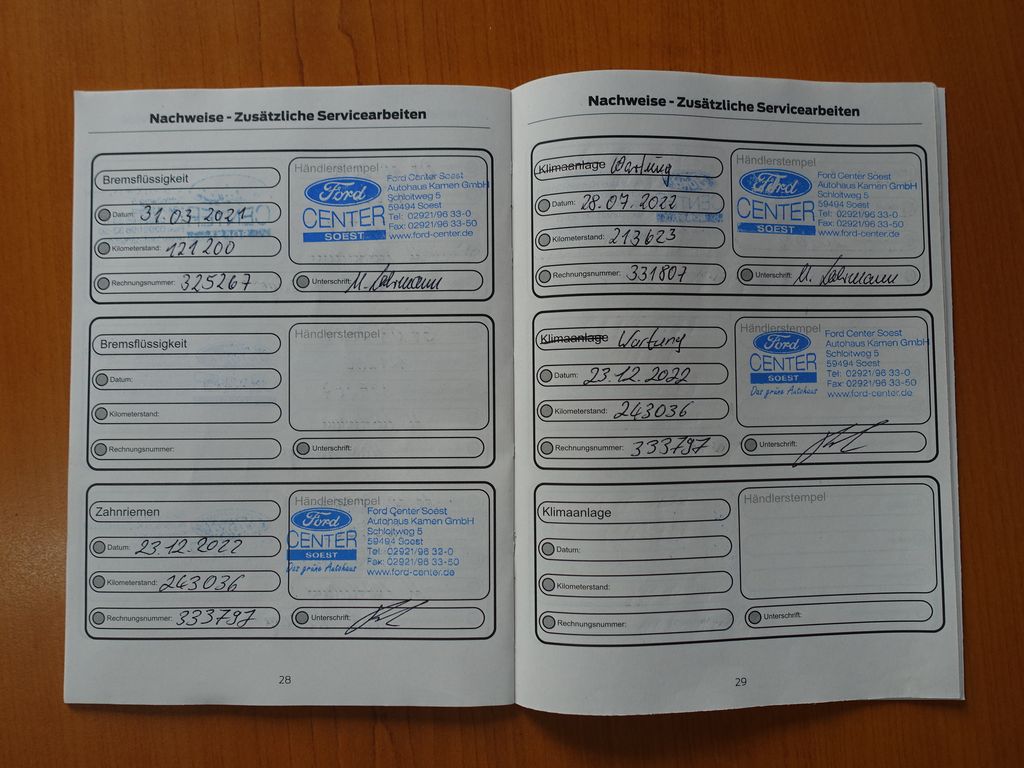 Nachweise - Zusätzliche Servicearbeiten
Bremsflüssigkeit
Datum: 31.03.2021
Kilometerstand: 121200
Rechnungsnummer: 325267
Händlerstempel
Ford
CENTER
SOEST
Ford Center Soest
Autohaus Kamen GmbH
Schloitweg 5
59494 Soest
Tel: 02921/96 33-0
Fax: 02921/96 33-50
www.ford-center.de
Unterschrift:
Bremsflüssigkeit
Datum:
Kilometerstand:
Rechnungsnummer:
Händlerstempel
Unterschrift:
Zahnriemen
Datum: 23.12.2022
Kilometerstand: 243036
Rechnungsnummer: 333797
Händlerstempel
Ford
CENTER
SOEST
Das grüne Autohaus
Ford Center Soest
Autohaus Kamen GmbH
Schloitweg 5
59494 Soest
Tel.: 02921/96 33-0
Fax: 02921/96 33-50
www.ford-center.de
Unterschrift:
28
Nachweise - Zusätzliche Servicearbeiten
Klimaanlage Wartung
Datum: 28.07.2022
Kilometerstand: 213623
Rechnungsnummer: 331807
Händlerstempel
Ford
CENTER
SOEST
Ford Center Soest
Autohaus Kamen GmbH
Schloitweg 5
59494 Soest
Tel: 02921/96 33-0
Fax: 02921/96 33-50
www.ford-center.de
Unterschrift:
Klimaanlage Wartung
Datum: 23.12.2022
Kilometerstand: 243036
Rechnungsnummer: 333797
Händlerstempel
Ford
CENTER
SOEST
Das grüne Autohaus
Ford Center Soest
Autohaus Kamen GmbH
Schloitweg 5
59494 Soest
Tel: 02921/96 33-0
Fax: 02921/96 33-50
www.ford-center.de
Unterschrift:
Klimaanlage
Datum:
Kilometerstand:
Rechnungsnummer:
Händlerstempel
Unterschrift:
29